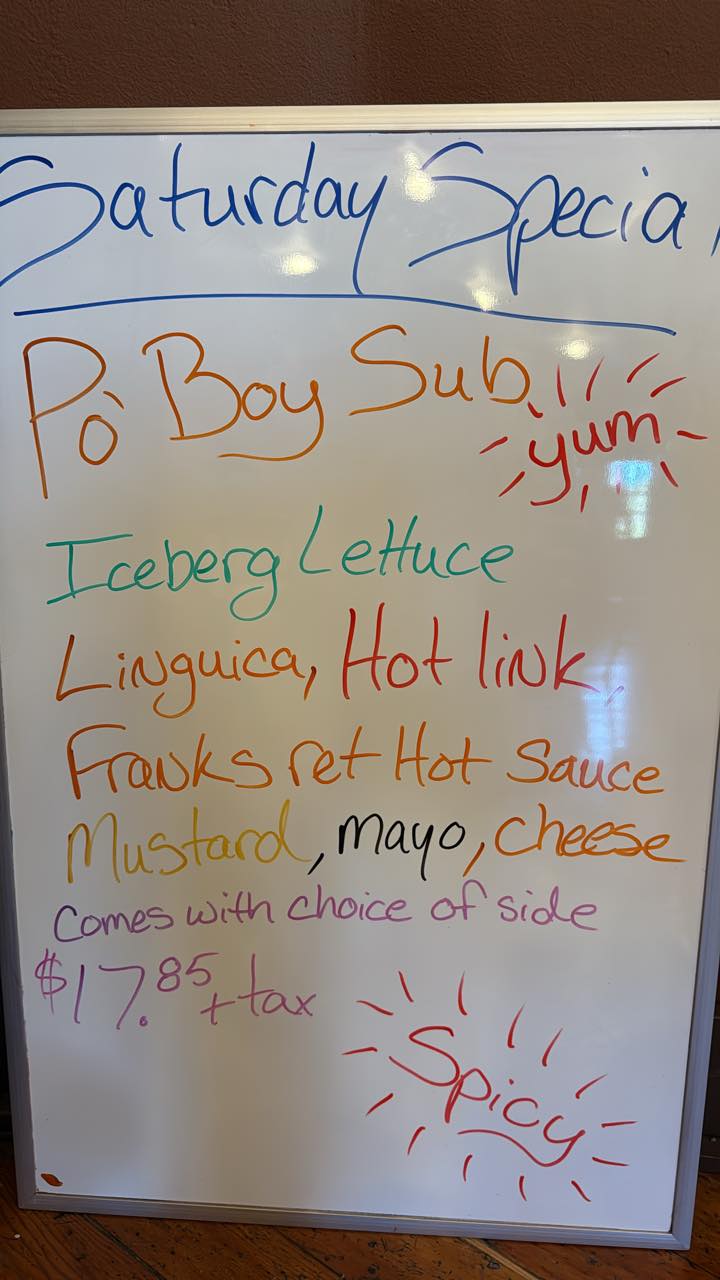 Saturday Special
Pò Boy Sub
yum
Iceberg Lettuce
Linguica, Hot link,
Franks ret Hot Sauce
Mustard, mayo, cheese
Comes with choice of side
$17.85 + tax
Spicy